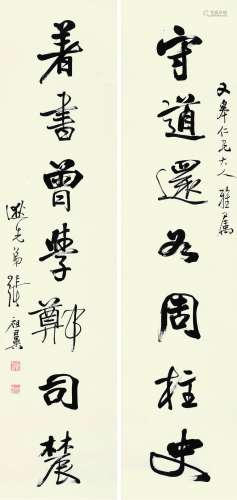 又皋仁兄大人雅屬
守道還為周柱史
著書曾學鄭司辳
逖先弟張祖翼